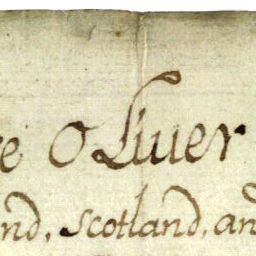 e Oliuer
nd, Scotland, an